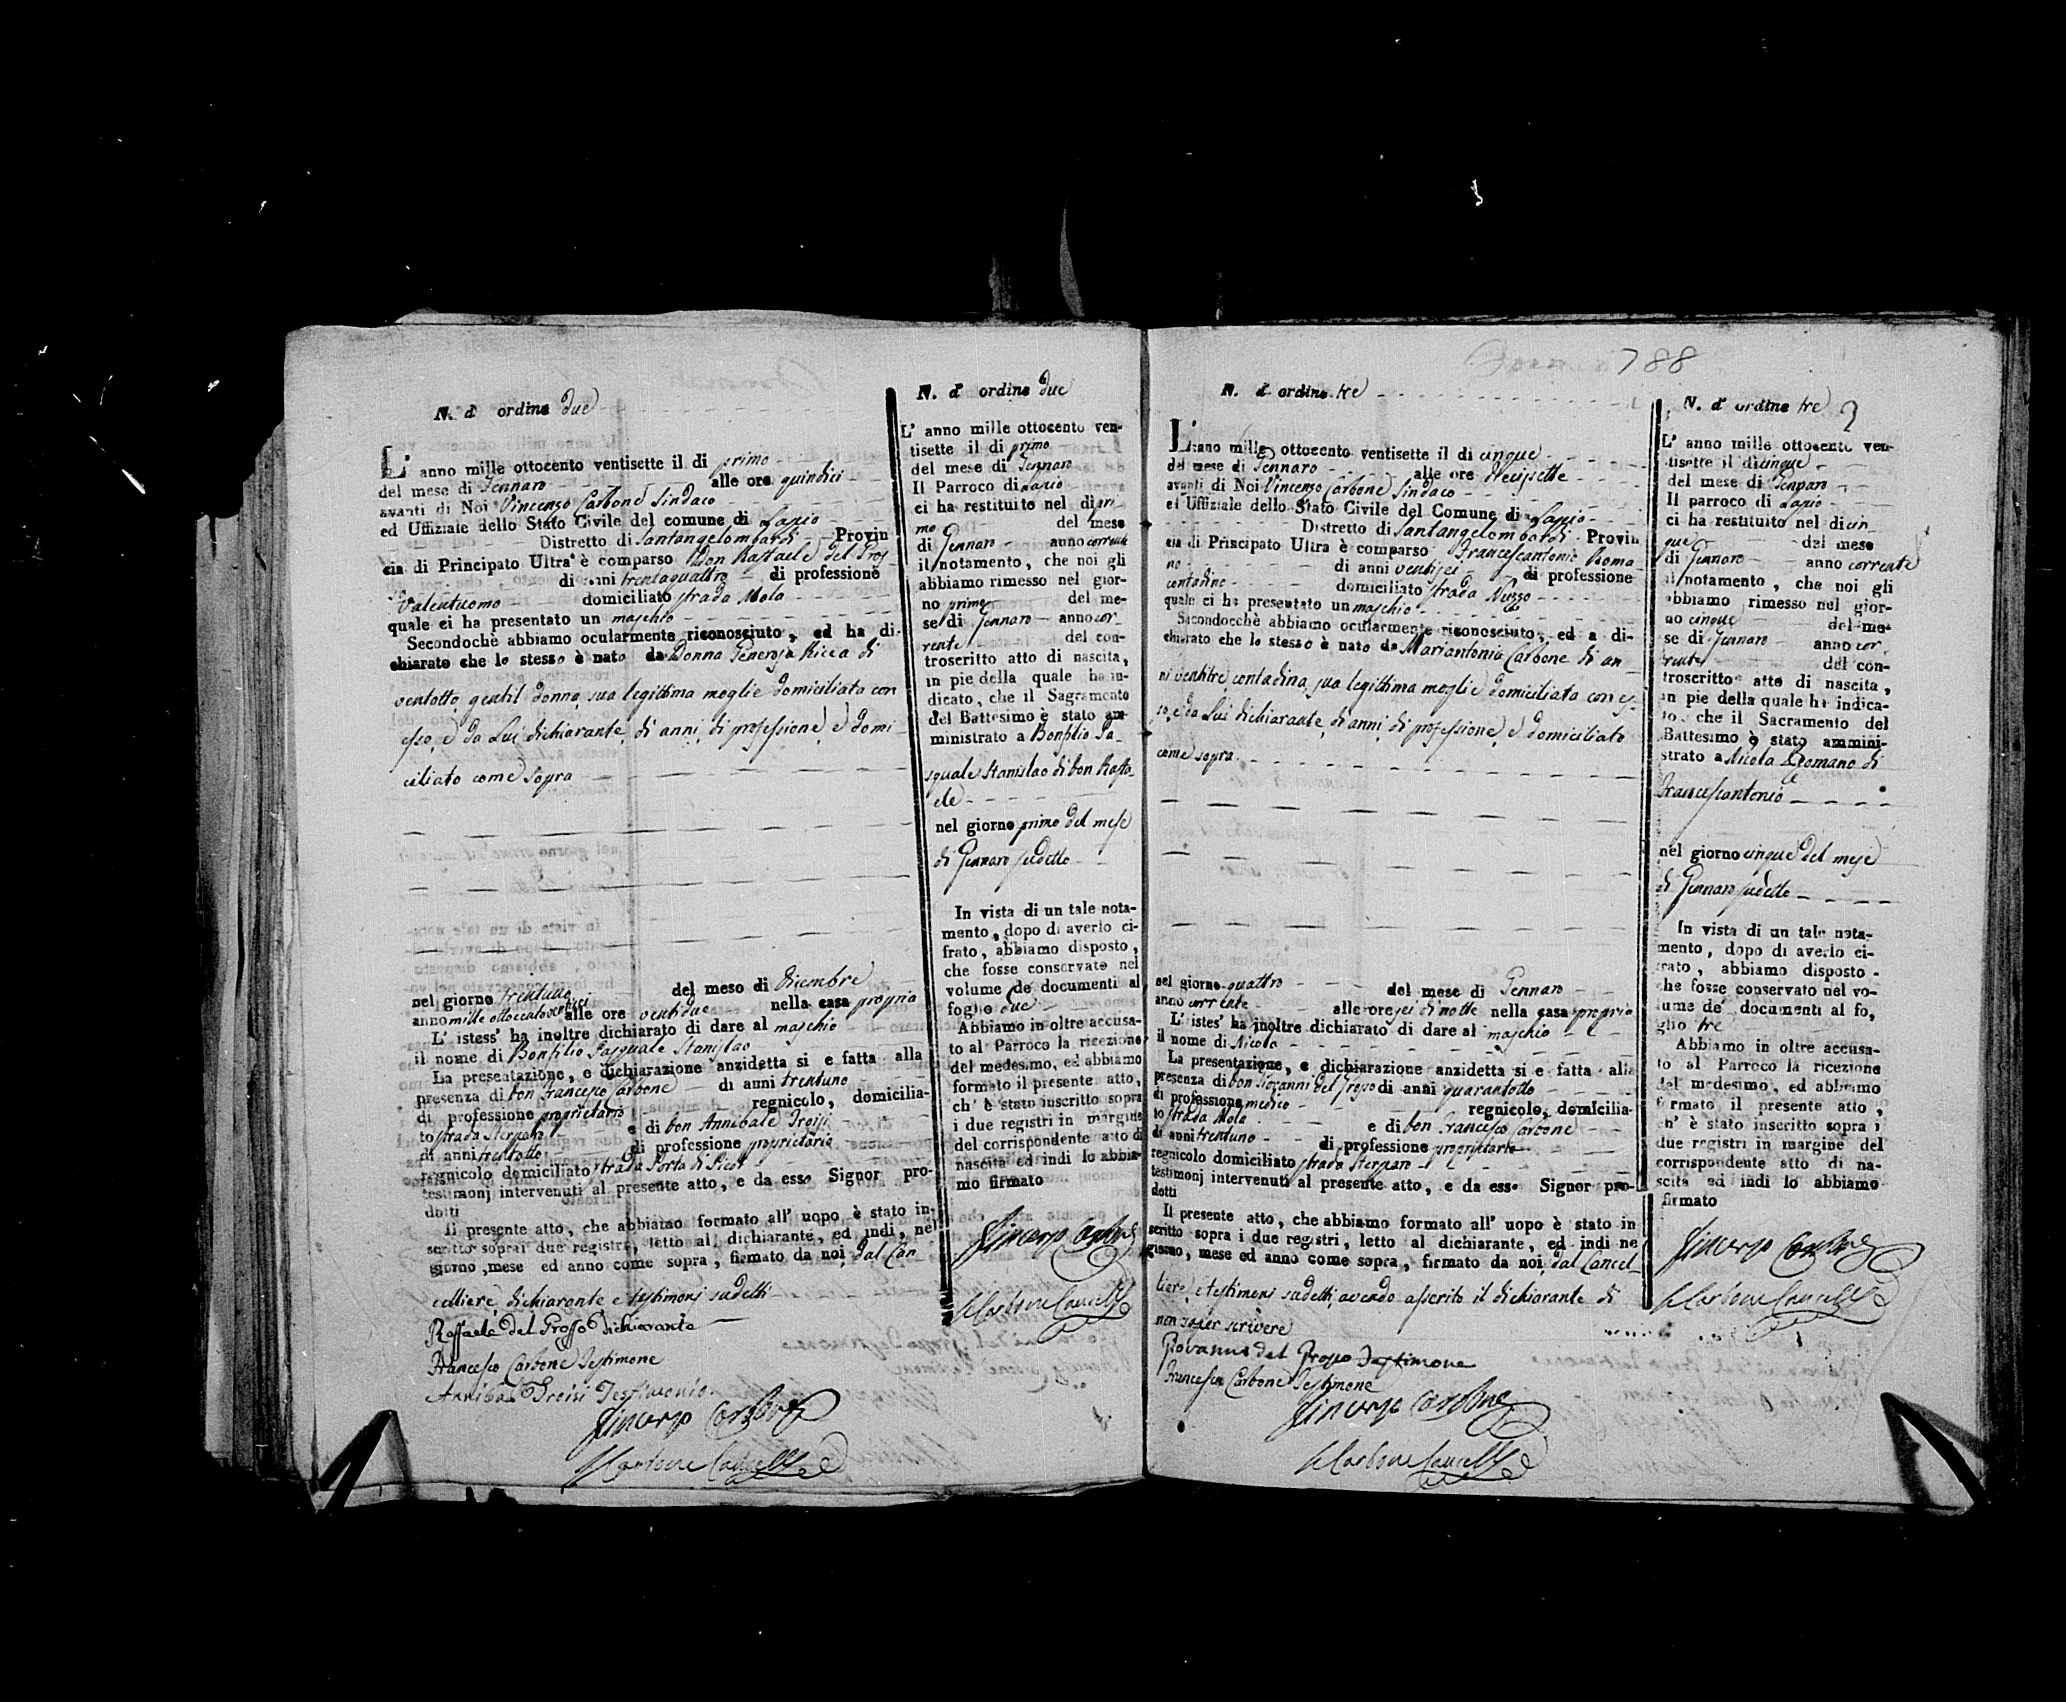 N. d' ordine due
L' anno mille ottocento ventisette il di primo
del mese di Gennaro alle ore quindici
avanti di Noi Vincenzo Carbone Sindaco
ed Uffiziale dello Stato Civile del comune di Lapio
Distretto di Santangelombardi Provin
cia di Principato Ultra è comparso Don Raffaele del Gros-
so di anni trentaquattro di professione
Valentuomo domiciliato strada Mola
quale ci ha presentato un maschio
Secondochè abbiamo ocularmente riconosciuto, ed ha di-
chiarato che lo stesso è nato da Donna Generosa Ricca di
ventotto, gentil donna, sua legittima moglie domiciliata con
esso, e da Lui dichiarante, di anni, di professione, e domi-
ciliato come sopra
nel giorno trentuno del mese di Dicembre
anno mille ottocentoventisei alle ore ventidue nella casa propria
L' istess' ha inoltre dichiarato di dare al maschio
il nome di Bonfilio Pasquale Stanislao
La presentazione, e dichiarazione anzidetta si e fatta alla
presenza di Don Francesco Carbone di anni trentuno
di professione proprietario regnicolo, domicilia-
to strada Sterparo e di Don Annibale Troisi
di anni trentotto di professione proprietario
regnicolo domiciliato strada Porta di
testimonj intervenuti al presente atto, e da esso Signor pro-
dotti
Il presente atto, che abbiamo formato all' uopo è stato in-
scritto sopra i due registri, letto al dichiarante, ed indi, nel
giorno, mese ed anno come sopra, firmato da noi, dal Can-
celliere, dichiarante e testimonj sudetti
Raffaele del Grosso dichiarante
Francesco Carbone Testimone
Annibal Troisi Testimonio
Vincenzo Carbone
Carbone Cancell
N. d' ordine due
L' anno mille ottocento ven-
tisette il di primo
del mese di Gennaro
Il Parroco di Lapio
ci ha restituito nel di pri-
mo del mese
di Gennaro anno corrente
il notamento, che noi gli
abbiamo rimesso nel gior-
no primo del me-
se di Gennaro anno cor-
rente del con-
troscritto atto di nascita,
in pie della quale ha in-
dicato, che il Sagramento
del Battesimo è stato am-
ministrato a Bonfilio Pa-
squale Stanislao di Don Raffa-
ele
nel giorno primo del mese
di Gennaro sudetto
In vista di un tale nota-
mento, dopo di averlo ci-
frato, abbiamo disposto,
che fosse conservato nel
volume de' documenti al
foglio due
Abbiamo in oltre accusa-
to al Parroco la ricezione
del medesimo, ed abbiamo
formato il presente atto,
ch' è stato inscritto sopra
i due registri in margine
del corrispondente atto di
nascita ed indi lo abbia-
mo firmato
Vincenzo Carbone
Carbone Cancell
788
N. d' ordine tre
L' anno mille ottocento ventisette il di cinque
del mese di Gennaro alle ore Diecisette
avanti di Noi Vincenzo Carbone Sindaco
ed Uffiziale dello Stato Civile del Comune di Lapio
Distretto di Santangelombardi Provin
cia di Principato Ultra è comparso Francescantonio Roma-
no di anni ventisei di professione
contadino domiciliato strada Nuzzo
quale ci ha presentato un maschio
Secondocchè abbiamo ocularmente riconosciuto, ed a di-
chiarato che lo stesso è nato da Mariantonia Carbone di an-
ni ventitre, contadina, sua legittima moglie domiciliata con es-
so, e da Lui dichiarante, di anni, di professione, e domiciliato
come sopra
nel giorno quattro del mese di Gennaro
anno corrente alle ore sei di notte nella casa propria
L' istes' ha inoltre dichiarato di dare al maschio
il nome di Nicola
La presentazione, e dichiarazione anzidetta si e fatta alla
presenza di Don Giovanni del Grosso di anni quarantotto
di professione medico regnicolo, domicilia-
to strada Mola e di Don Francesco Carbone
di anni trentuno di professione proprietario
regnicolo domiciliato strada Sterparo
testimonj intervenuti al presente atto, e da esso Signor pro-
dotti
Il presente atto, che abbiamo formato all' uopo è stato in
scritto sopra i due registri, letto al dichiarante, ed indi ne
giorno, mese ed anno come sopra, firmato da noi, dal Cancel-
liere, e testimonj sudetti, avendo asserito il dichiarante di
non saper scrivere
Giovanni del Grosso Testimone
Francesco Carbone Testimone
Vincenzo Carbone
Carbone Cancell
N. d' ordine tre 3
L' anno mille ottocento ven-
tisette il di cinque
del mese di Gennaro
Il parroco di Lapio
ci ha restituito nel di cin-
que del mese
di Gennaro anno corrente
il notamento, che noi gli
abbiamo rimesso nel gior-
no cinque del me-
se di Gennaro anno cor-
rente del con-
troscritto atto di nascita,
in pie della quale ha indica-
to, che il Sacramento del
Battesimo è stato ammini-
strato a Nicola Romano di
Francescantonio
nel giorno cinque del mese
di Gennaro sudetto
In vista di un tale nota-
mento, dopo di averlo ci-
frato, abbiamo disposto
che fosse conservato nel vo-
lume de' documenti al fo,
glio tre
Abbiamo in oltre accusa-
to al Parroco la ricezione
del medesimo, ed abbiamo
formato il presente atto,
ch' è stato inscritto sopra i
due registri in margine del
corrispondente atto di na-
scita ed indi lo abbiamo
firmato
Vincenzo Carbone
Carbone Cancell